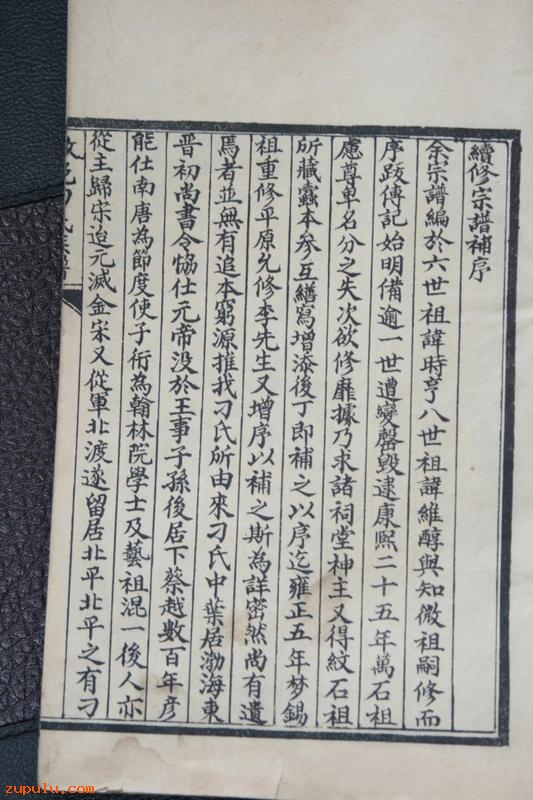 續修宗譜補序
余宗譜編於六世祖諱時亨八世祖諱維醇與知微祖嗣修而
序跋傳記始明備逾一世遭變罄毀逮康熙二十五年萬石祖
慮尊卑名分之失次欲修靡據乃求諸祠堂神主又得紋石祖
所藏蠹本參互繕寫增添後丁即補之以序迄雍正五年梦錫
祖重修平原允修李先生又增序以補之斯為詳密然尚有遺
焉者並無有追本窮源推我刁氏所由來刁氏中葉居渤海東
晋初尚書令恊仕元帝没於王事子孫後居下蔡越數百年彦
能仕南唐為節度使子衎為翰林院學士及藝祖混一後人亦
從主歸宋迨元滅金宋又從軍北渡遂留居北平北平之有刁
zupulu.com